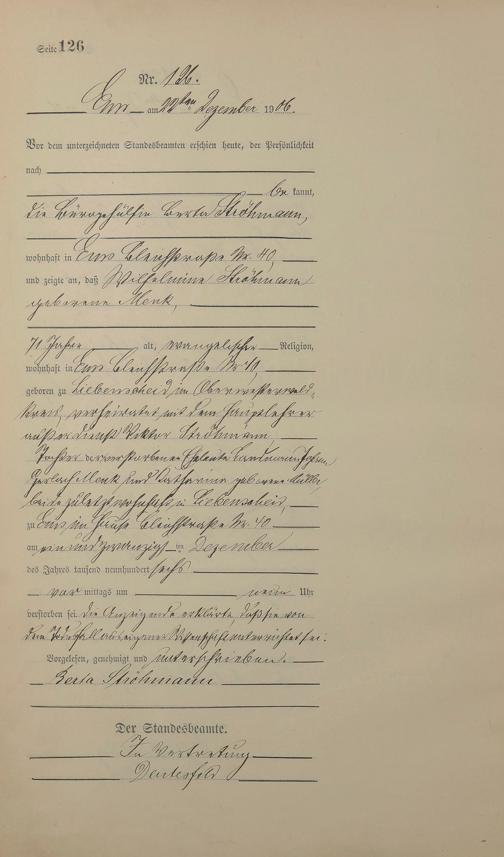 Seite 126
Nr. 126.
Ems am 22ten Dezember 1906.
Vor dem unterzeichneten Standesbeamten erschien heute, der Persönlichkeit
nach
be kannt,
die Bürogehülfin Berta Ströhmann,
wohnhaft in Ems Bleichstraße Nr. 40,
und zeigte an, daß Wilhelmine Ströhmann
geborene Menk,
71 Jahre alt, evangelischer Religion,
wohnhaft in Ems Bleichstraße Nr 40,
geboren zu Liebenscheid im Oberwesterwald-
kreis, verheiratet mit dem Hauptlehrer
außer Dienst Viktor Ströhmann,
Tochter der verstorbenen Eheleute Landmann
Gerlach Menk und Katharine geborene
beide zuletzt wohnhaft in Liebenscheid,
zu Ems im Hause Bleichstraße Nr. 40
am ein und zwanzigsten Dezember
des Jahres tausend neunhundert sechs
vor mittags um neun Uhr
verstorben sei. Die Anzeigende erklärte, daß sie von
dem Todesfall aus eigener Wissenschaft unterrichtet sei.
Vorgelesen, genehmigt und unterschrieben.
Berta Ströhmann
Der Standesbeamte.
In Vertretung